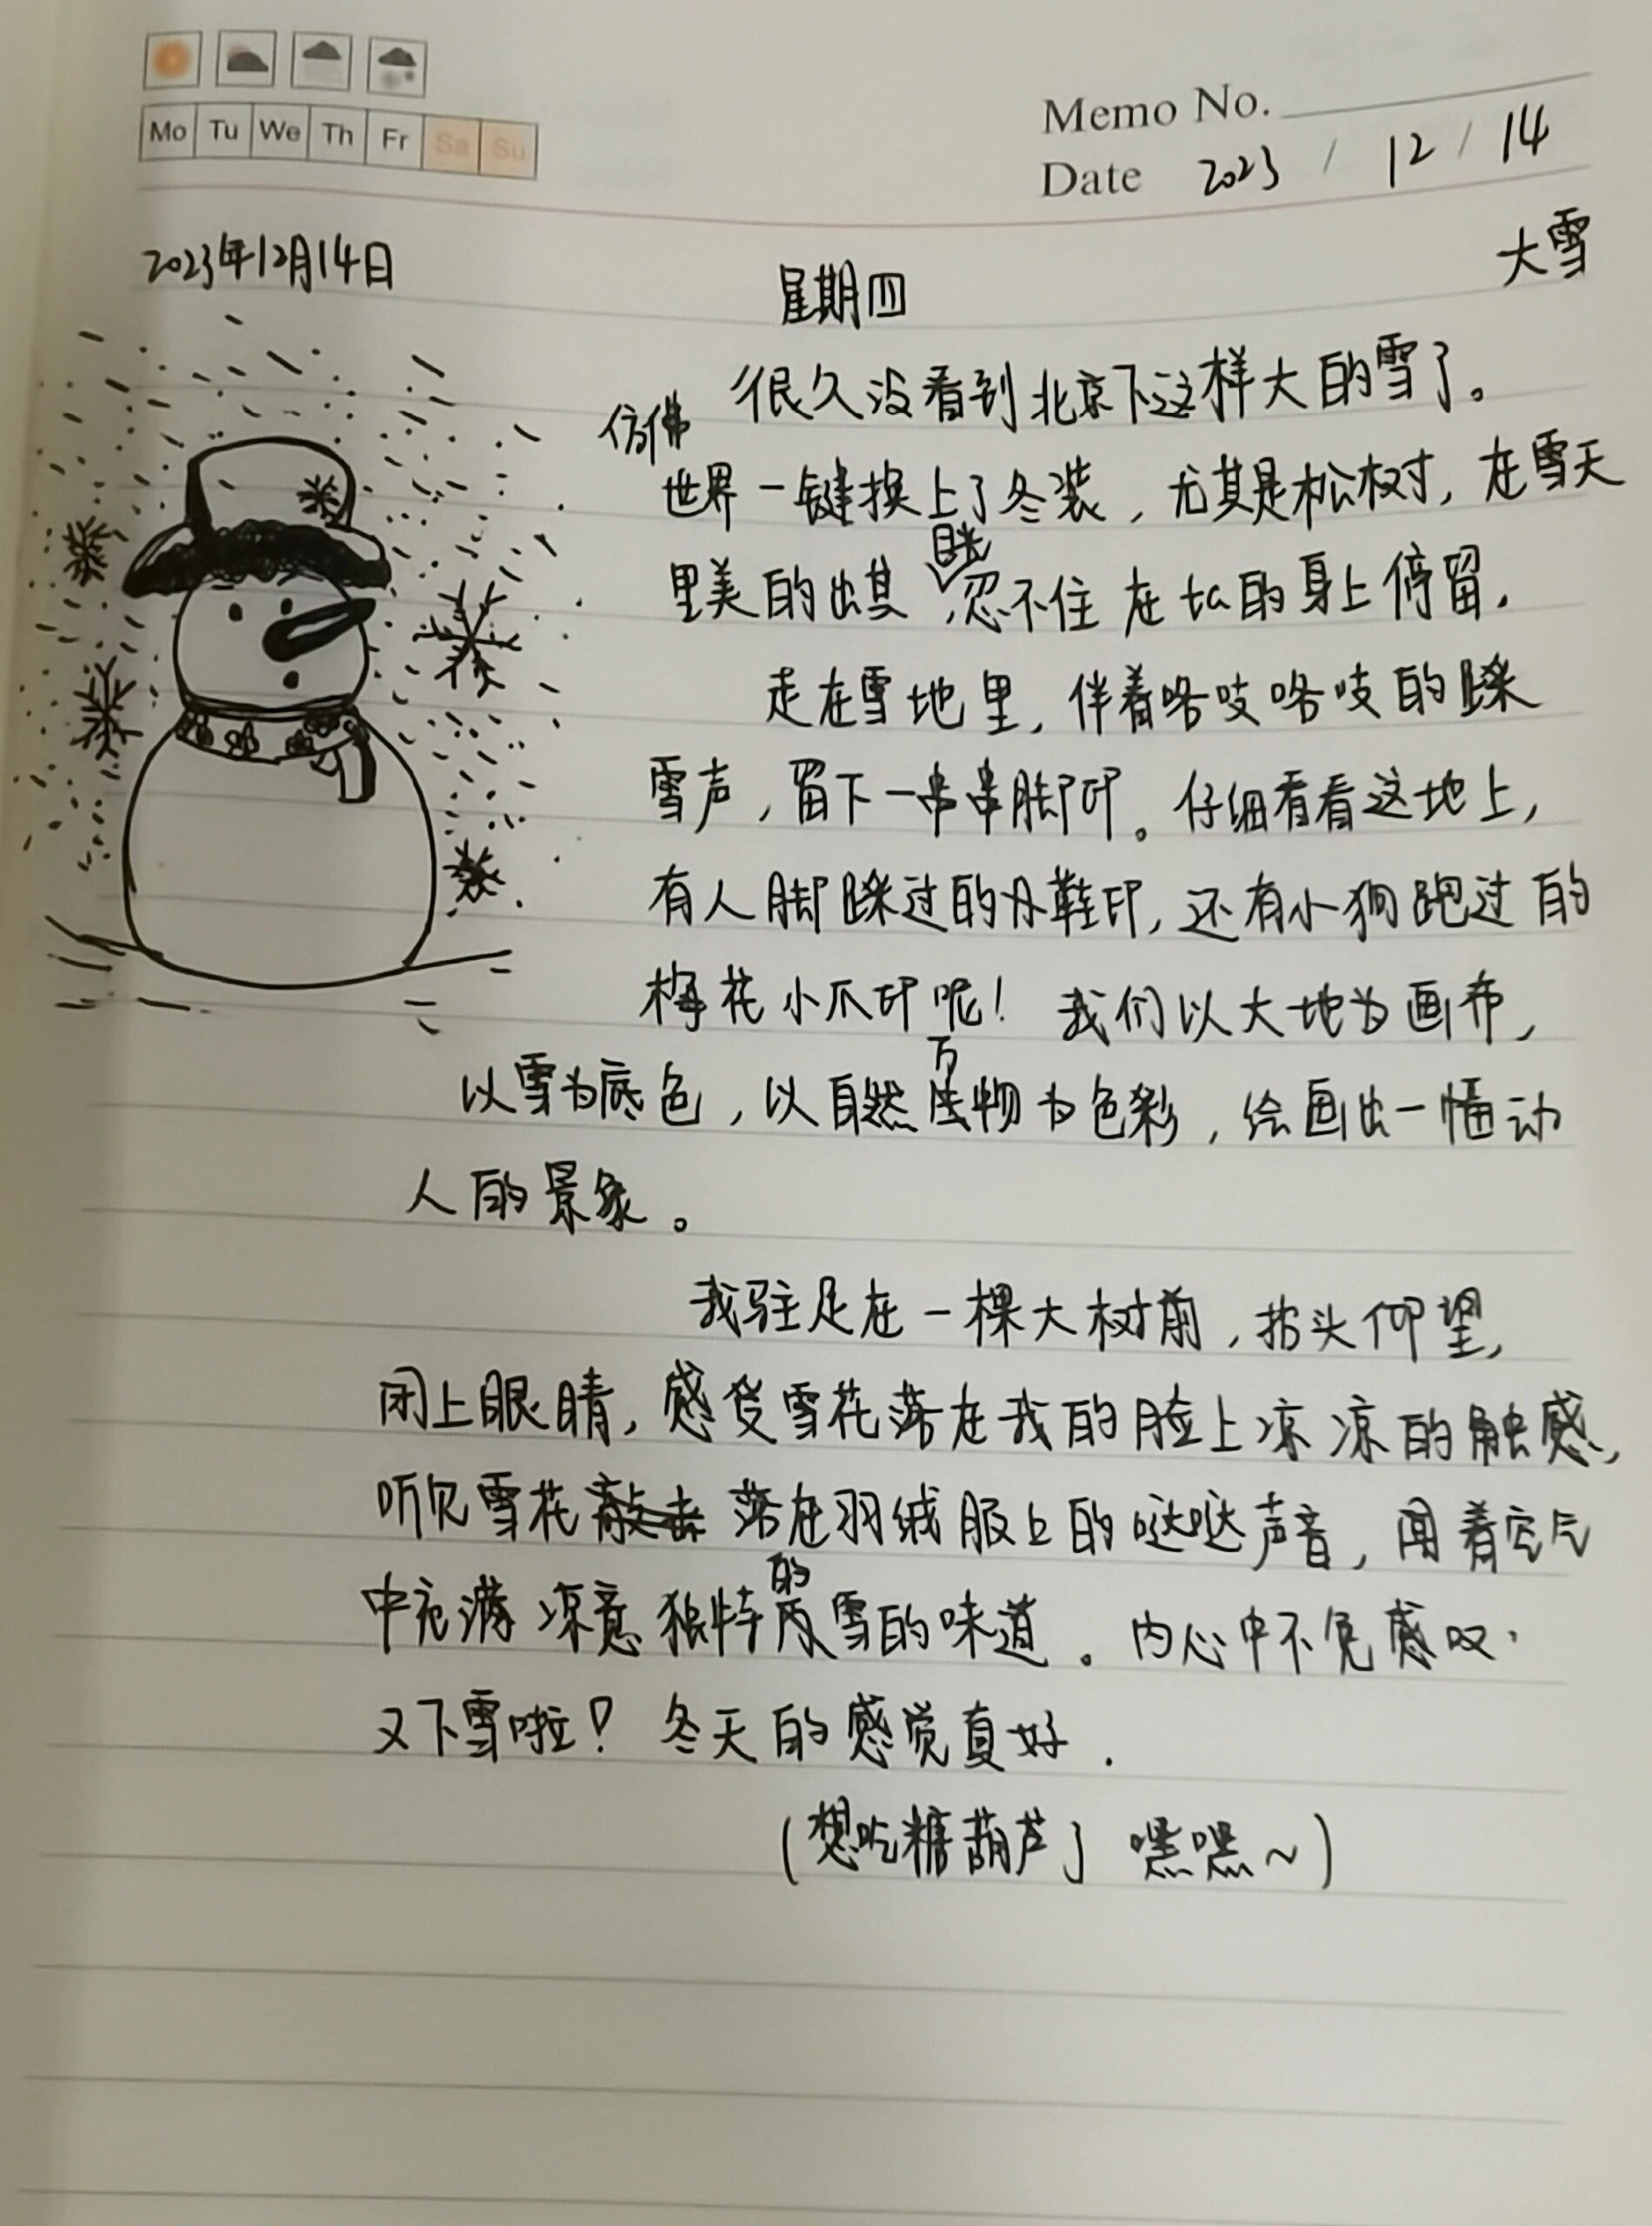 Mo Tu We Th Fr Sa Su
Memo No.
Date 2023 / 12 / 14
2023年12月14日 星期四 大雪
很久没看到北京下这样大的雪了。
仿佛
世界一键换上了冬装，尤其是松树，在雪天
目光
里美的出其，忍不住在ta的身上停留，
走在雪地里，伴着咯吱咯吱的踩
雪声，留下一串串脚印。仔细看看这地上，
有人脚踩过的小鞋印，还有小狗跑过的
梅花小爪印呢！我们以大地为画布，
万
以雪为底色，以自然物为色彩，绘画出一幅动
人的景象。
我驻足在一棵大树前，抬头仰望，
闭上眼睛，感受雪花落在我的脸上凉凉的触感，
听见雪花敲击落在羽绒服上的哒哒声音，闻着空气
的
中充满凉意独特雪的味道。内心中不免感叹：
又下雪啦！冬天的感觉真好．
（想吃糖葫芦了 嘿嘿~）